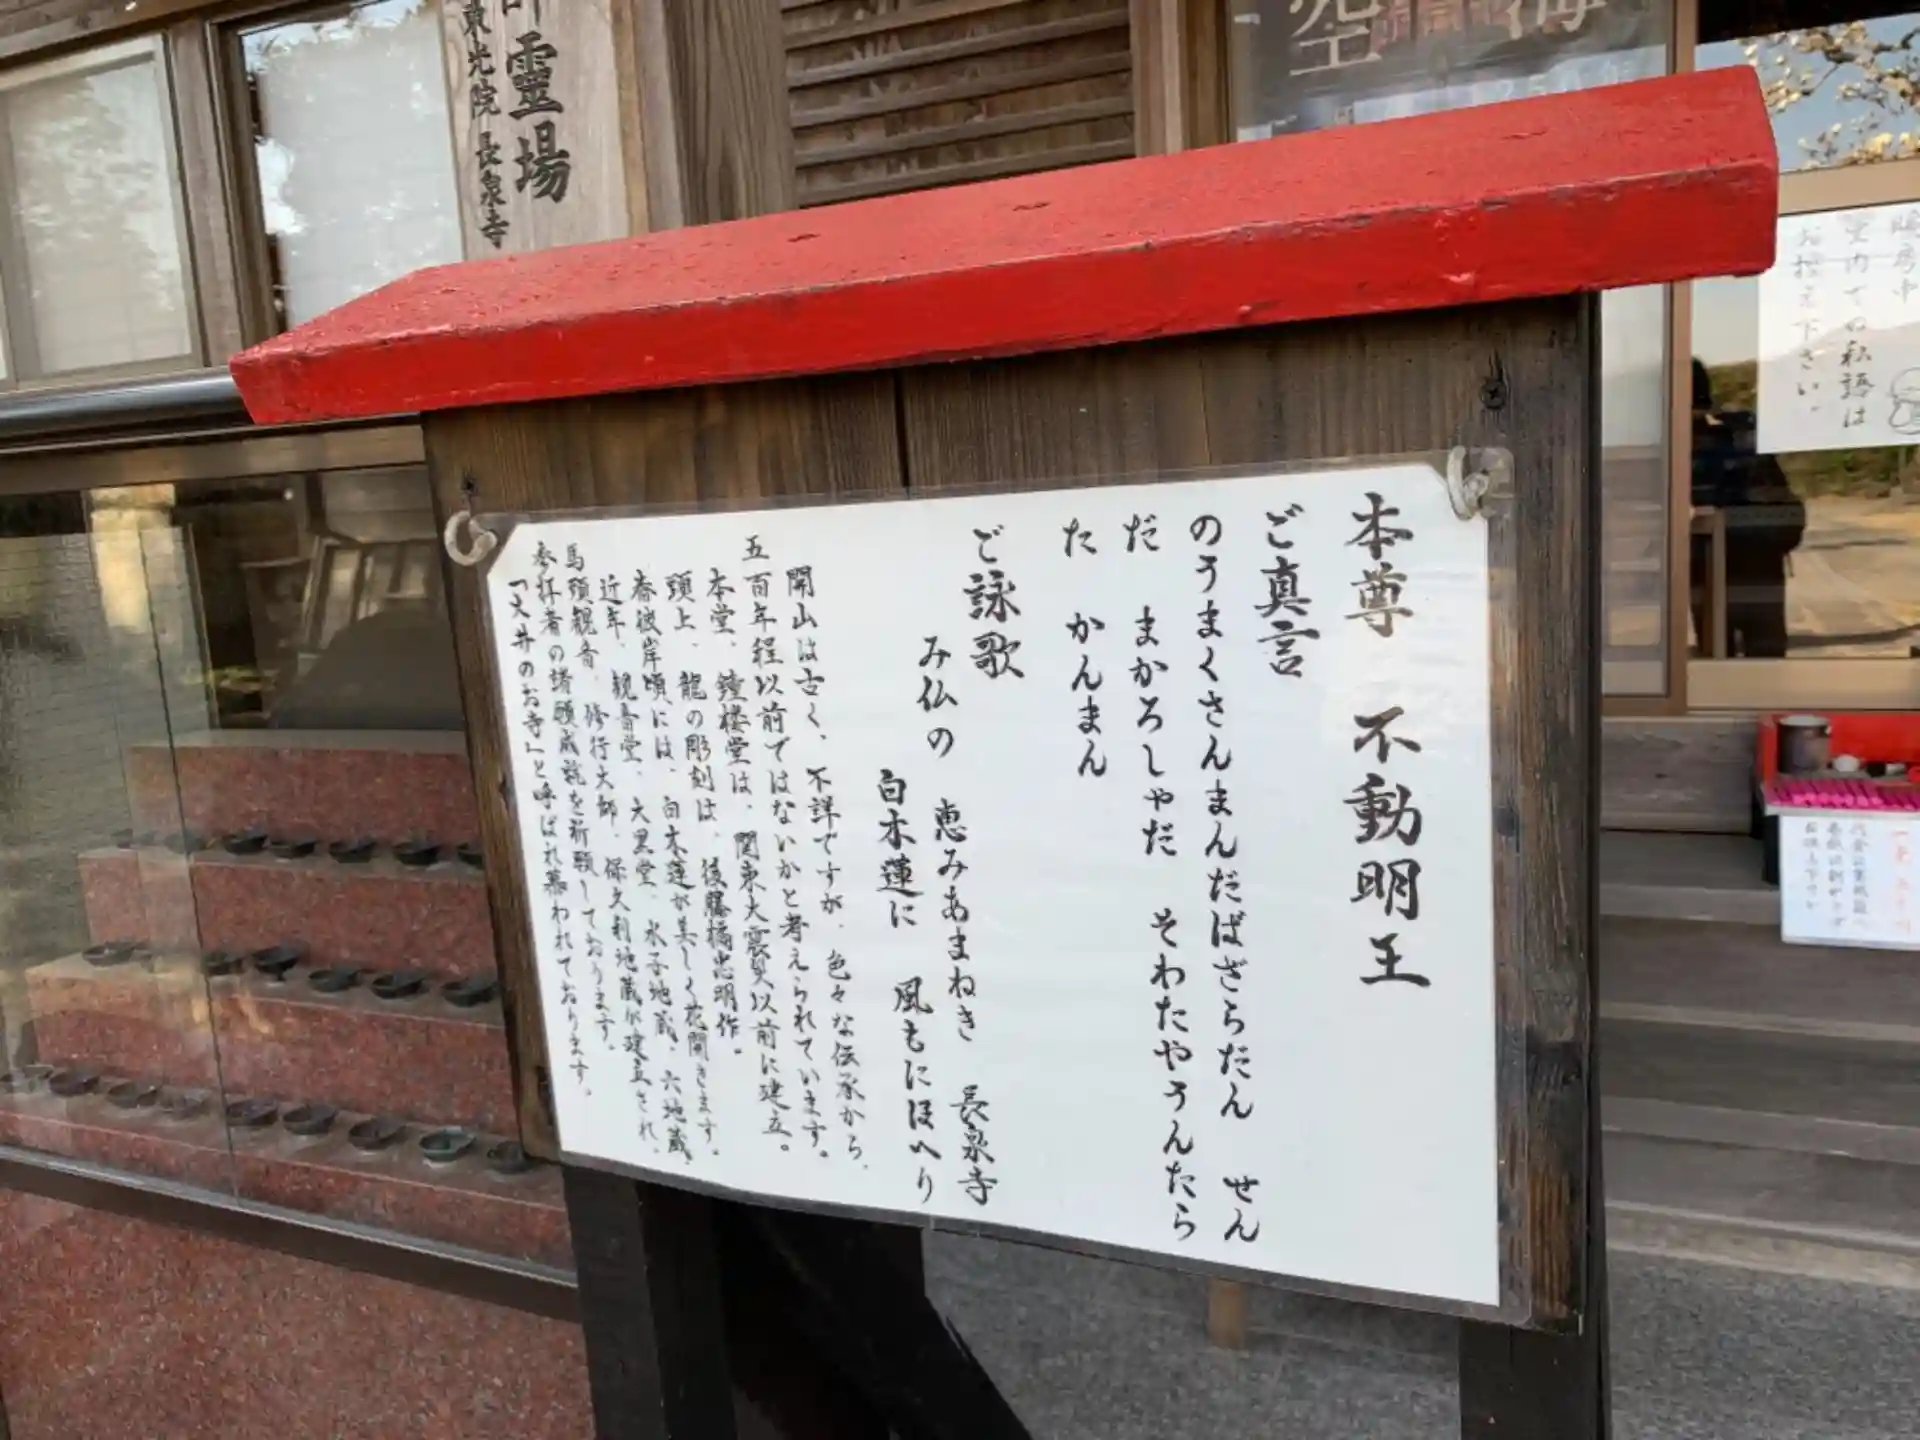 本尊 不動明王
ご真言
のうまくさんまんだばざらだん せん
だ まかろしゃだ そわたやうんたら
た かんまん
ご詠歌
み仏の 恵みあまねき 長泉寺
白木蓮に 風もにほへり
開山は古く、不詳ですが、色々な伝承から、
五百年程以前ではないかと考えられています。
本堂、鐘楼堂は、関東大震災以前に建立。
頭上、龍の彫刻は、後藤橘忠明作。
春彼岸頃には、白木蓮が美しく花開きます。
近年、観音堂、大黒堂、水子地蔵、六地蔵、
馬頭観音、修行大師、保久利地蔵が建立され、
参拝者の諸願成就を祈願しております。
「大井のお寺」と呼ばれ慕われております。
師霊場
東光院 長泉寺
空海
堂内での私語は
お控え下さい。